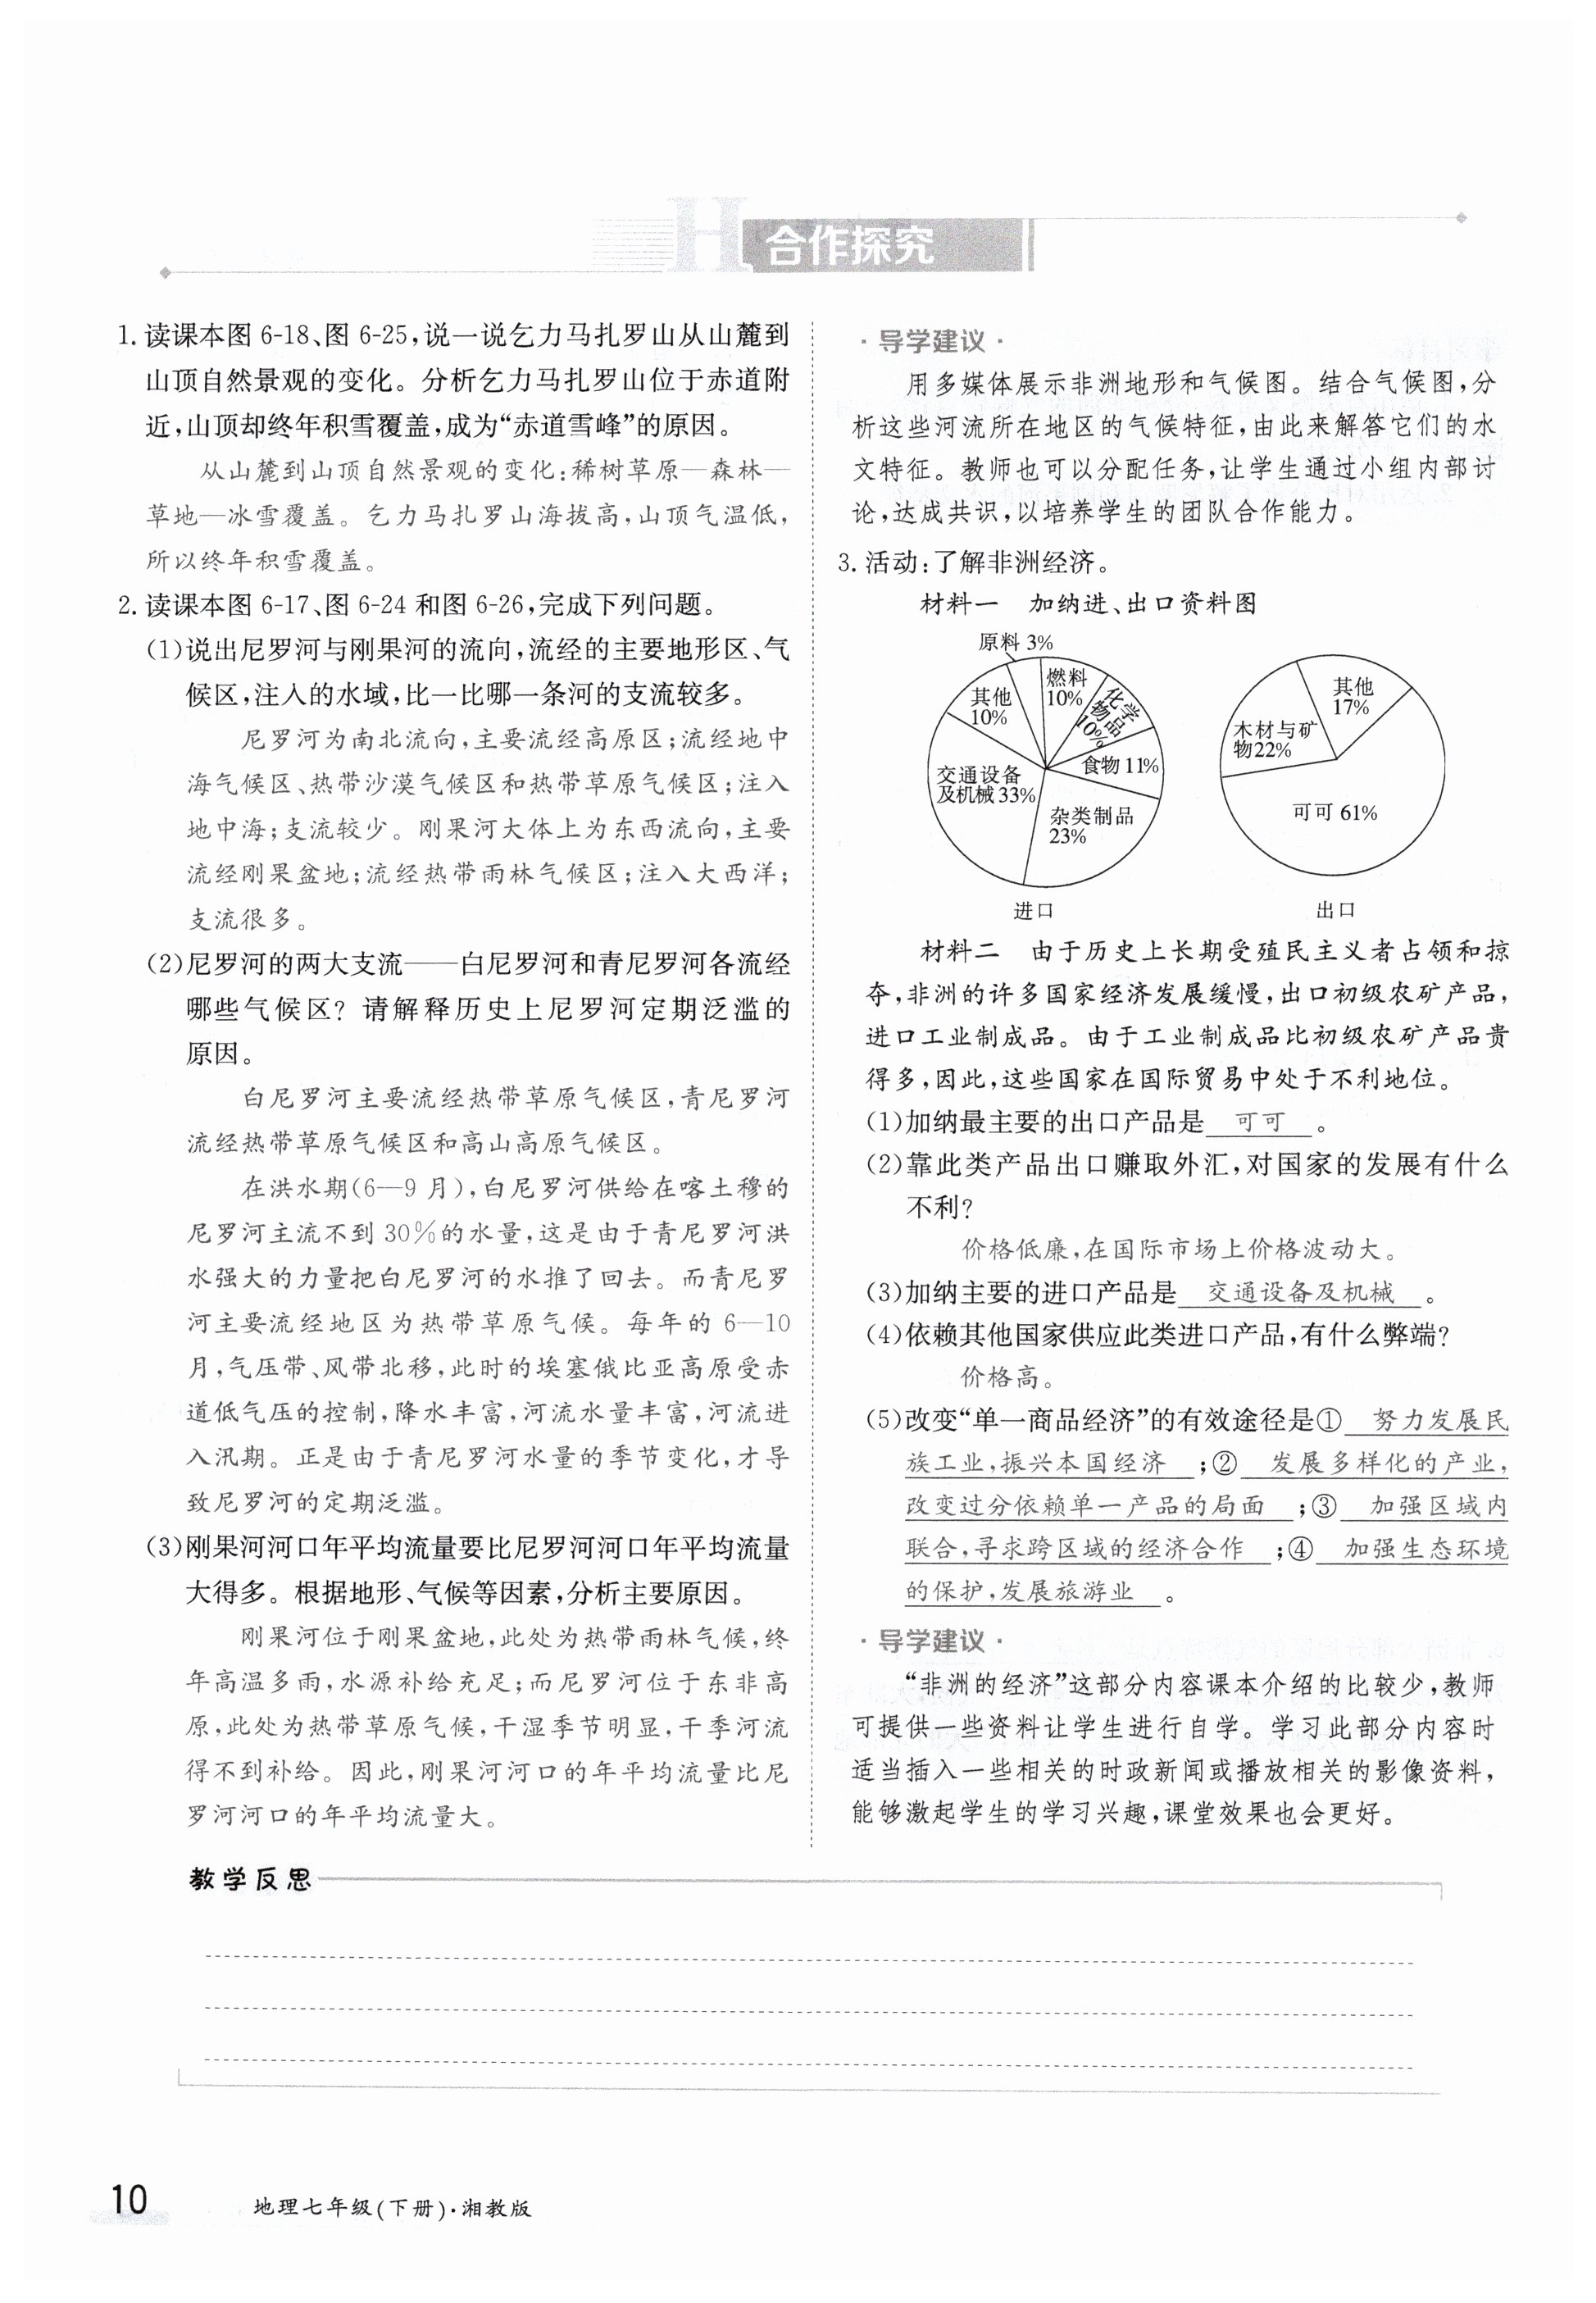 H 合作探究
1. 读课本图 6-18、图 6-25,说一说乞力马扎罗山从山麓到
山顶自然景观的变化。分析乞力马扎罗山位于赤道附
近,山顶却终年积雪覆盖,成为“赤道雪峰”的原因。
从山麓到山顶自然景观的变化:稀树草原—森林—
草地—冰雪覆盖。乞力马扎罗山海拔高,山顶气温低,
所以终年积雪覆盖。
2. 读课本图 6-17、图 6-24 和图 6-26,完成下列问题。
(1)说出尼罗河与刚果河的流向,流经的主要地形区、气
候区,注入的水域,比一比哪一条河的支流较多。
尼罗河为南北流向,主要流经高原区;流经地中
海气候区、热带沙漠气候区和热带草原气候区;注入
地中海;支流较少。刚果河大体上为东西流向,主要
流经刚果盆地;流经热带雨林气候区;注入大西洋;
支流很多。
(2)尼罗河的两大支流——白尼罗河和青尼罗河各流经
哪些气候区?请解释历史上尼罗河定期泛滥的
原因。
白尼罗河主要流经热带草原气候区,青尼罗河
流经热带草原气候区和高山高原气候区。
在洪水期(6—9 月),白尼罗河供给在喀土穆的
尼罗河主流不到 30%的水量,这是由于青尼罗河洪
水强大的力量把白尼罗河的水推了回去。而青尼罗
河主要流经地区为热带草原气候。每年的 6—10
月,气压带、风带北移,此时的埃塞俄比亚高原受赤
道低气压的控制,降水丰富,河流水量丰富,河流进
入汛期。正是由于青尼罗河水量的季节变化,才导
致尼罗河的定期泛滥。
(3)刚果河河口年平均流量要比尼罗河河口年平均流量
大得多。根据地形、气候等因素,分析主要原因。
刚果河位于刚果盆地,此处为热带雨林气候,终
年高温多雨,水源补给充足;而尼罗河位于东非高
原,此处为热带草原气候,干湿季节明显,干季河流
得不到补给。因此,刚果河河口的年平均流量比尼
罗河河口的年平均流量大。
·导学建议·
用多媒体展示非洲地形和气候图。结合气候图,分
析这些河流所在地区的气候特征,由此来解答它们的水
文特征。教师也可以分配任务,让学生通过小组内部讨
论,达成共识,以培养学生的团队合作能力。
3. 活动:了解非洲经济。
材料一 加纳进、出口资料图
原料 3%
燃料
10%
化学
物品
10%
食物 11%
杂类制品
23%
交通设备
及机械 33%
其他
10%
进口
其他
17%
木材与矿
物22%
可可 61%
出口
材料二 由于历史上长期受殖民主义者占领和掠
夺,非洲的许多国家经济发展缓慢,出口初级农矿产品,
进口工业制成品。由于工业制成品比初级农矿产品贵
得多,因此,这些国家在国际贸易中处于不利地位。
(1)加纳最主要的出口产品是 可可 。
(2)靠此类产品出口赚取外汇,对国家的发展有什么
不利?
价格低廉,在国际市场上价格波动大。
(3)加纳主要的进口产品是 交通设备及机械 。
(4)依赖其他国家供应此类进口产品,有什么弊端?
价格高。
(5)改变“单一商品经济”的有效途径是① 努力发展民
族工业,振兴本国经济 ;② 发展多样化的产业,
改变过分依赖单一产品的局面 ;③ 加强区域内
联合,寻求跨区域的经济合作 ;④ 加强生态环境
的保护,发展旅游业 。
·导学建议·
“非洲的经济”这部分内容课本介绍的比较少,教师
可提供一些资料让学生进行自学。学习此部分内容时
适当插入一些相关的时政新闻或播放相关的影像资料,
能够激起学生的学习兴趣,课堂效果也会更好。
教学反思
10
地理七年级(下册)·湘教版